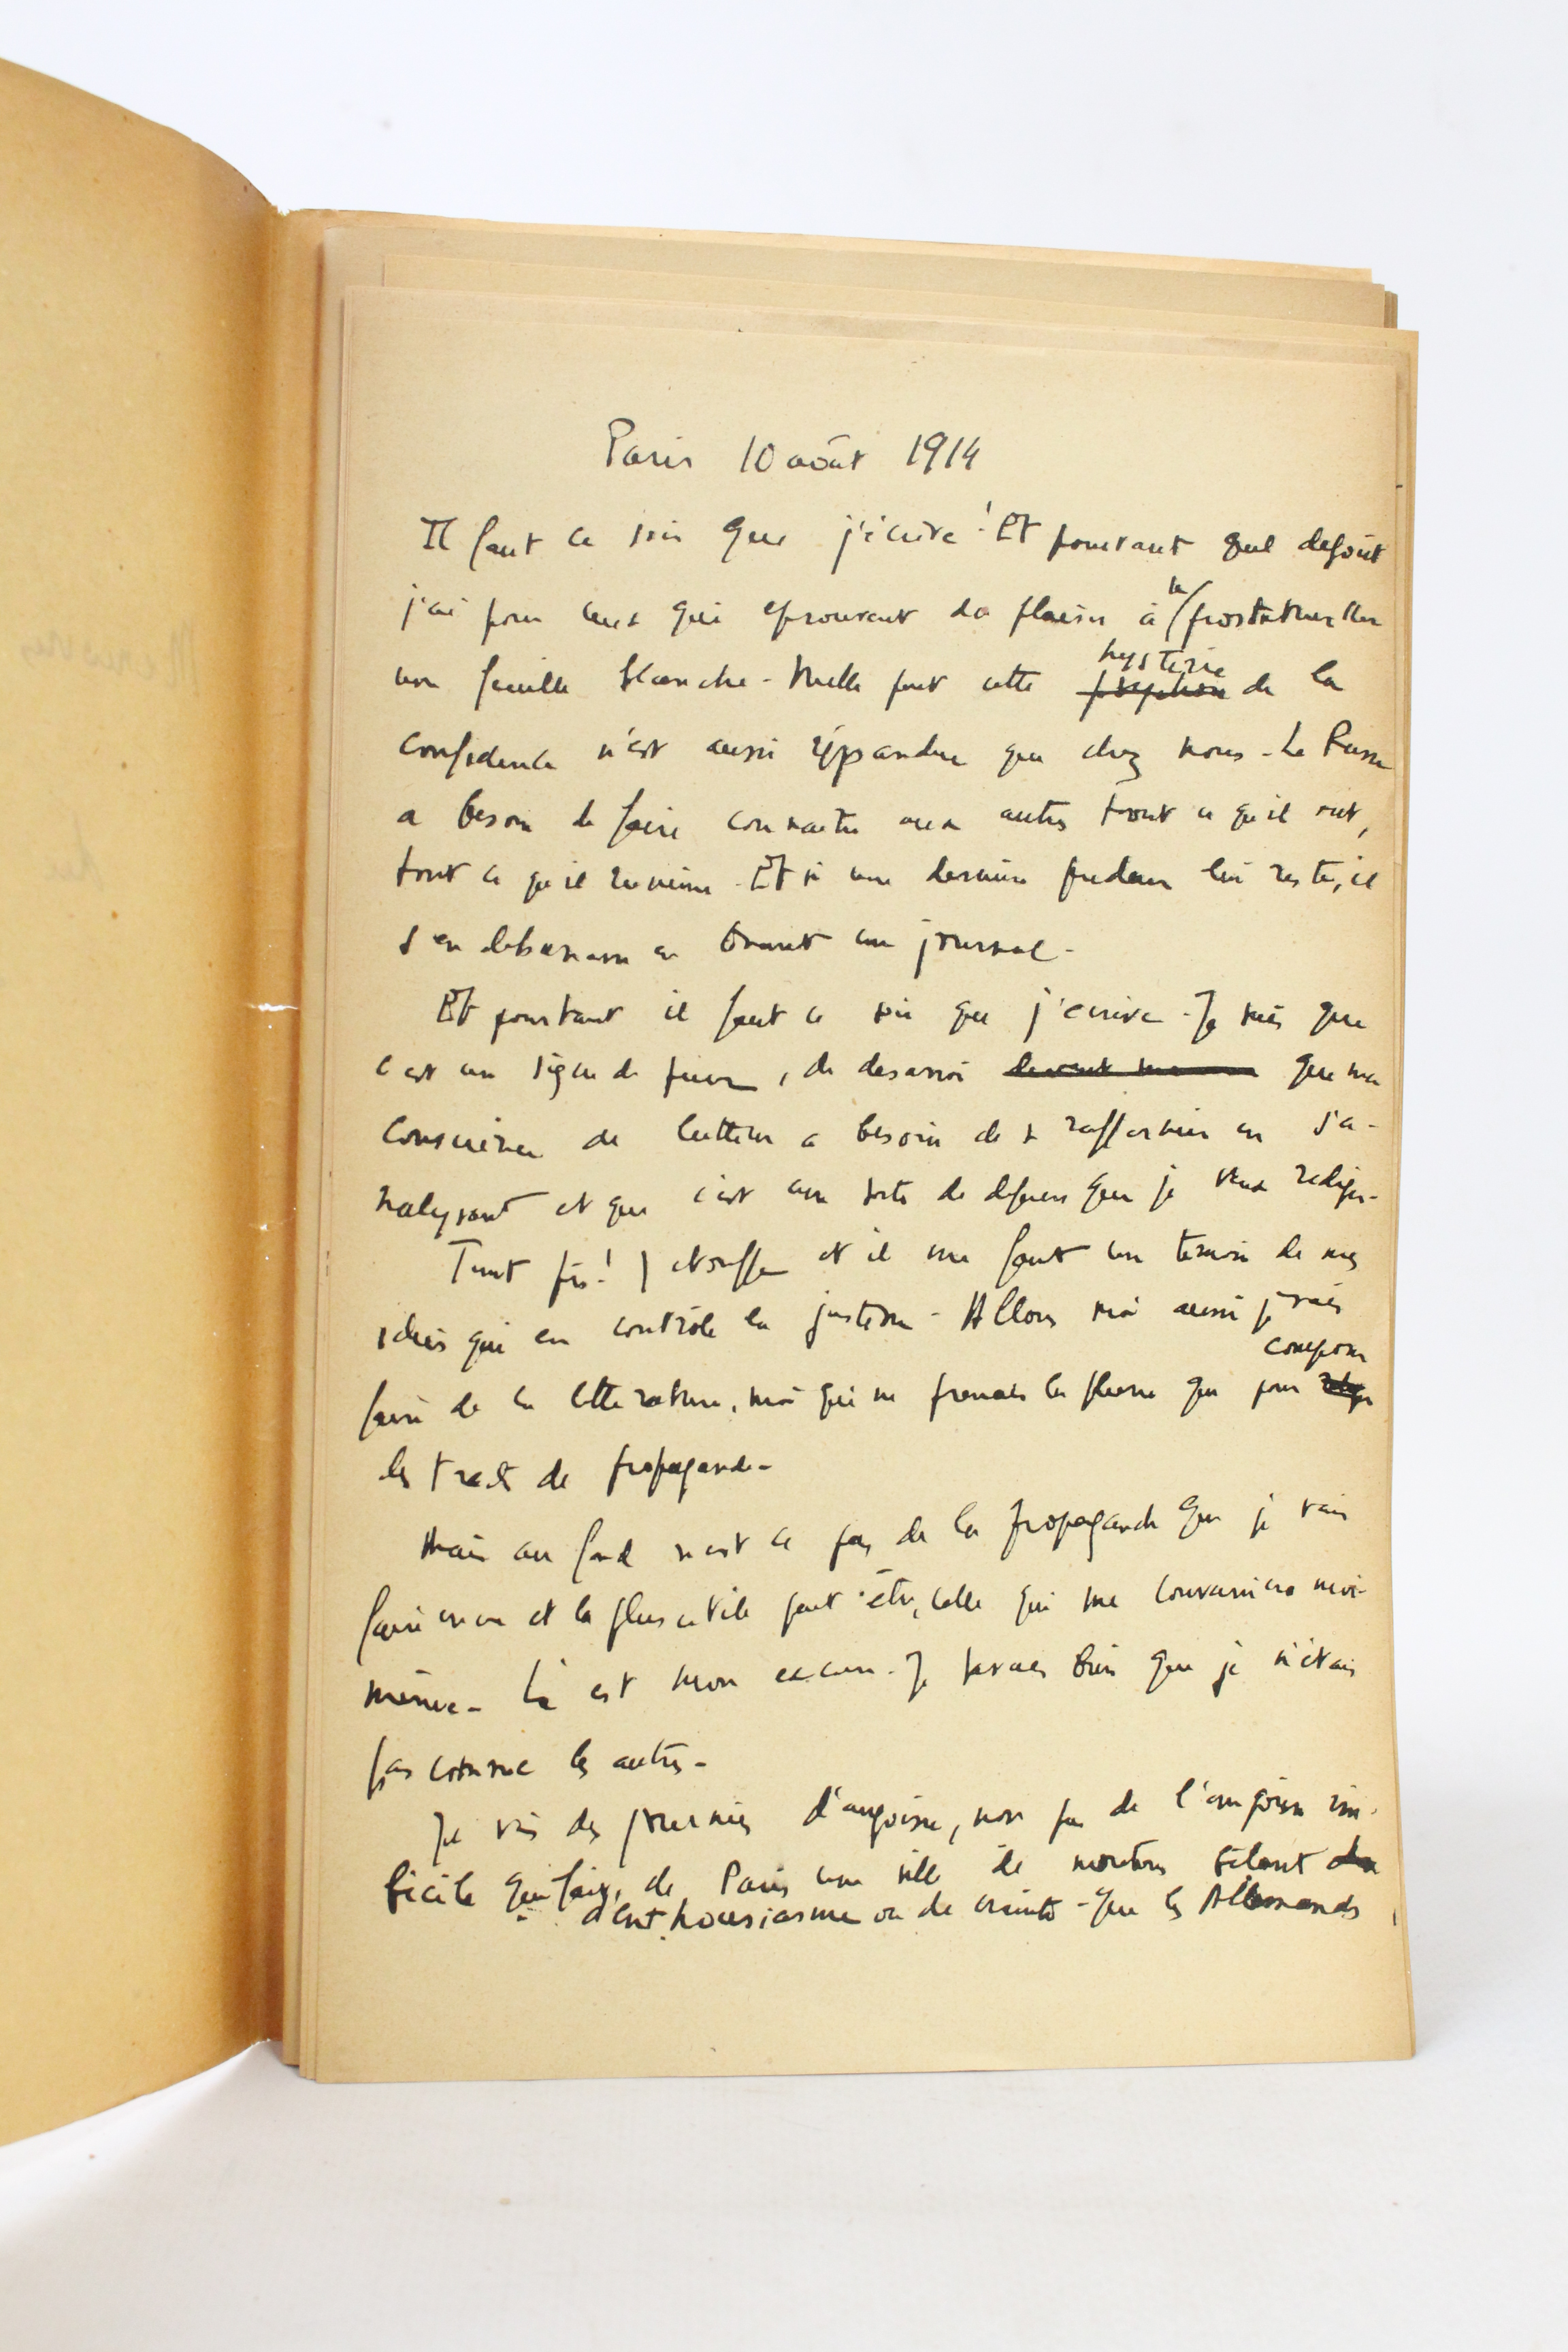 Paris 10 août 1914
Il faut ce soir que j'écrive ! Et pourtant quel dégoût
j'ai pour ceux qui eprouvent du plaisir à se prostituer sur
une feuille blanche - Nulle part cette hysterie de la
confidence n'est aussi répandue que chez nous - Le Russe
a besoin de faire connaitre aux autres tout ce qu'il voit,
tout ce qu'il rumine - Et si une dernière pudeur lui reste, il
s'en debarrasse en tenant un journal -
Et pourtant il faut ce soir que j'ecrive - Je sais que
c'est un signe de fievre, de desarroi que ma
conscience de lutteur a besoin de se raffermir en s'a-
nalysant et que c'est une sorte de defense que je veux rediger -
Tant pis ! J'etouffe et il me faut un temoin de mes
idées qui en contrôle la justesse - Allons moi aussi je vais
faire de la litterature, moi qui ne prenais la plume que pour composer
les tracts de propagande -
Mais au fond n'est ce pas de la propagande que je vais
faire encore et la plus utile peut être, celle qui me convaincra moi-
même - Là est mon excuse - Je savais bien que je n'étais
pas comme les autres -
Je vis des journées d'angoisse, non pas de l'angoisse im-
bécile qui fait de Paris une ville de moutons bêlant
d'enthousiasme ou de crainte - Que les Allemands